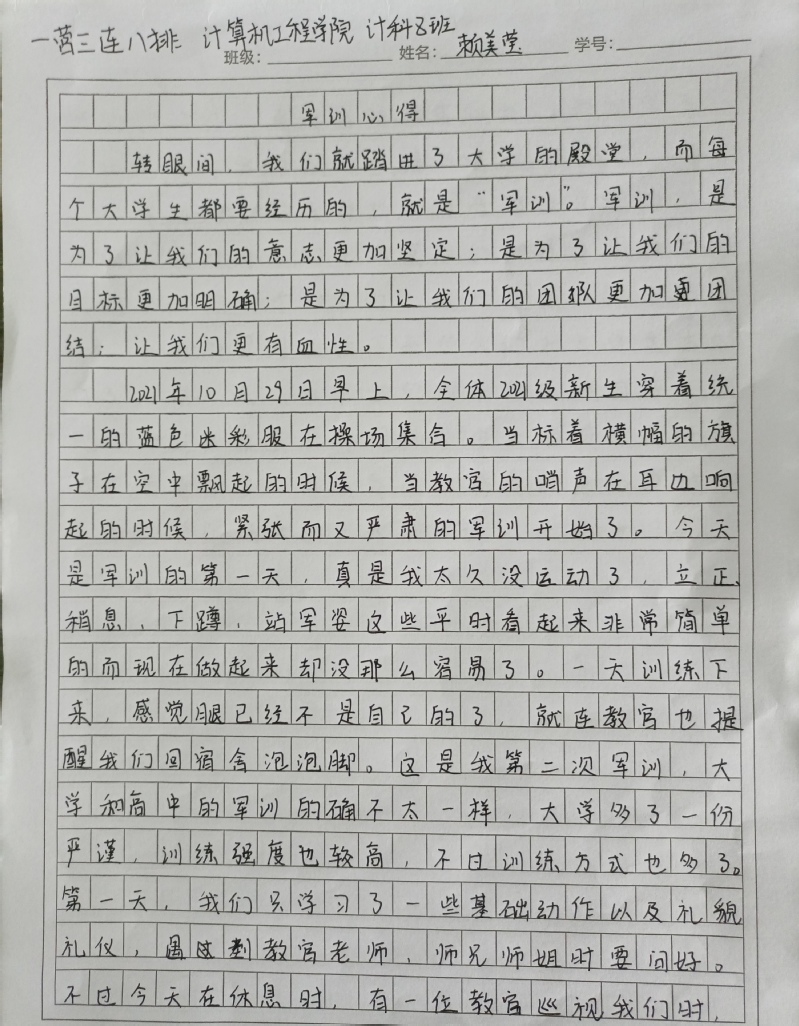 一营三连八排 计算机工程学院 计科8班
班级: 姓名: 赖美莹 学号:
军训心得
转眼间，我们就踏进了大学的殿堂，而每
个大学生都要经历的，就是“军训”。军训，是
为了让我们的意志更加坚定；是为了让我们的
目标更加明确；是为了让我们的团队更加更团
结；让我们更有血性。
2021年10月29日早上，全体2021级新生穿着统
一的蓝色迷彩服在操场集合。当标着横幅的旗
子在空中飘起的时候，当教官的哨声在耳边响
起的时候，紧张而又严肃的军训开始了。今天
是军训的第一天，真是我太久没运动了，立正、
稍息，下蹲，站军姿这些平时看起来非常简单
的而现在做起来却没那么容易了。一天训练下
来，感觉腿已经不是自己的了，就连教官也提
醒我们回宿舍泡泡脚。这是我第二次军训，大
学和高中的军训的确不太一样，大学多了一份
严谨，训练强度也较高，不过训练方式也多了。
第一天，我们只学习了一些基础动作以及礼貌
礼仪，遇过到教官老师，师兄师姐时要问好。
不过今天在休息时，有一位教官巡视我们时，